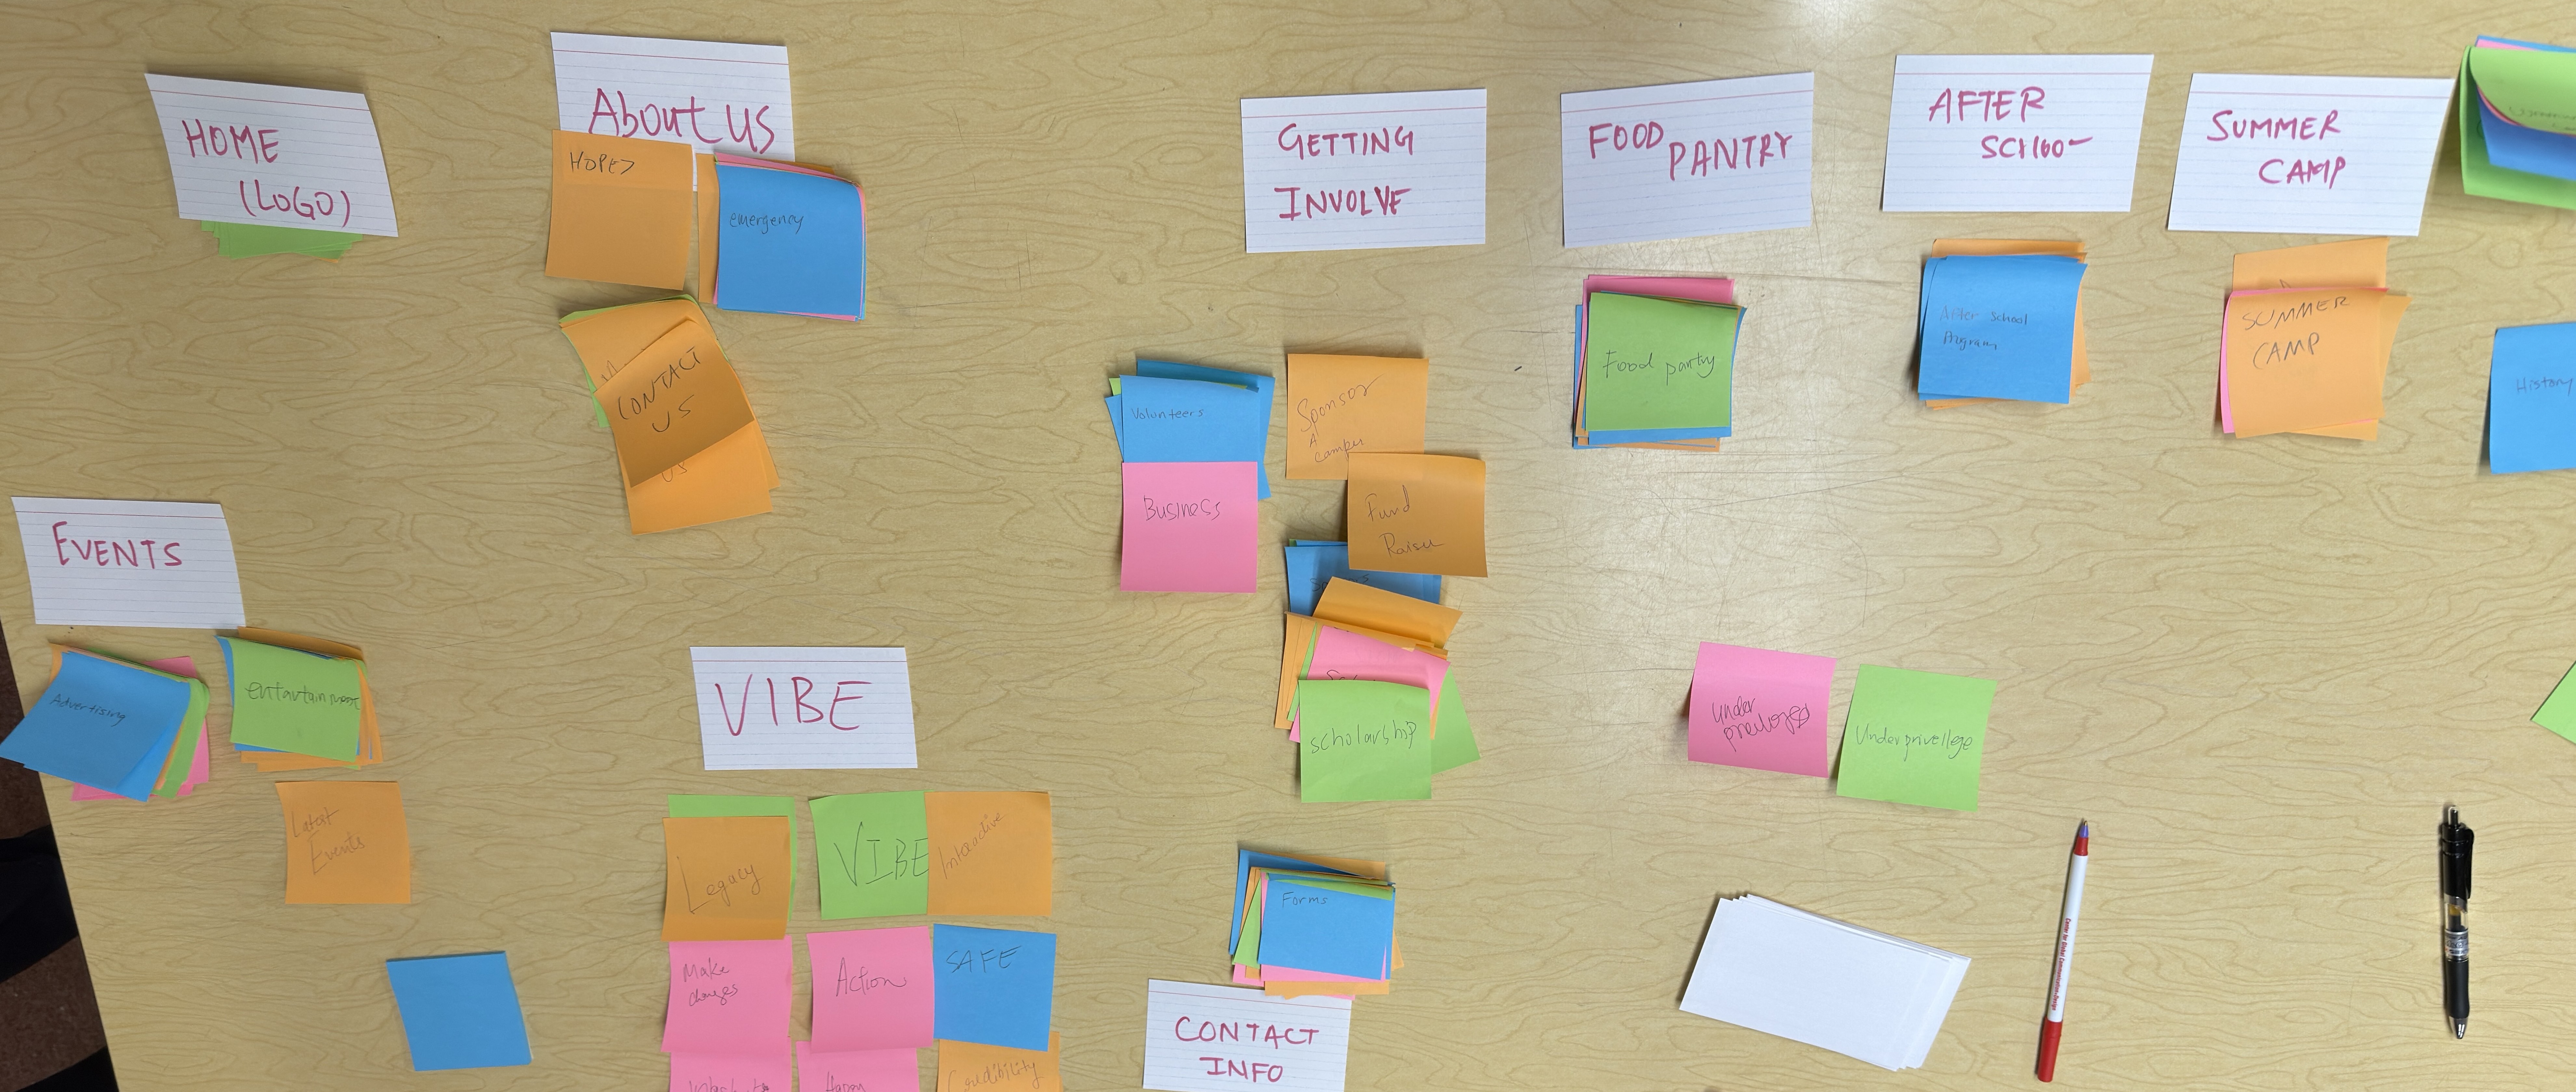 HOME
(LOGO)
About US
HOPE7
emergency
CONTACT
US
US
GETTING
INVOLVE
Volunteers
Business
Sponsor
A
Camper
Fund
Raiser
scholarship
FOOD
PANTRY
Food pantry
AFTER
SCHOOL
After School
Program
SUMMER
CAMP
SUMMER
CAMP
History
EVENTS
Advertising
entertainment
Latest
Events
VIBE
Legacy
VIBE
Interactive
Make
changes
Action
SAFE
Happy
Credibility
under
Underprivellege
Forms
CONTACT
INFO